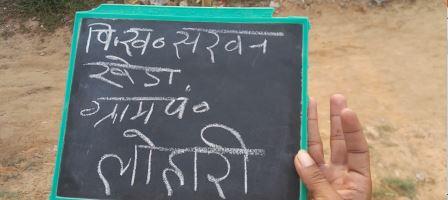 वि.ख० सरवन
खेडा
ग्राम पं०
लोहारी